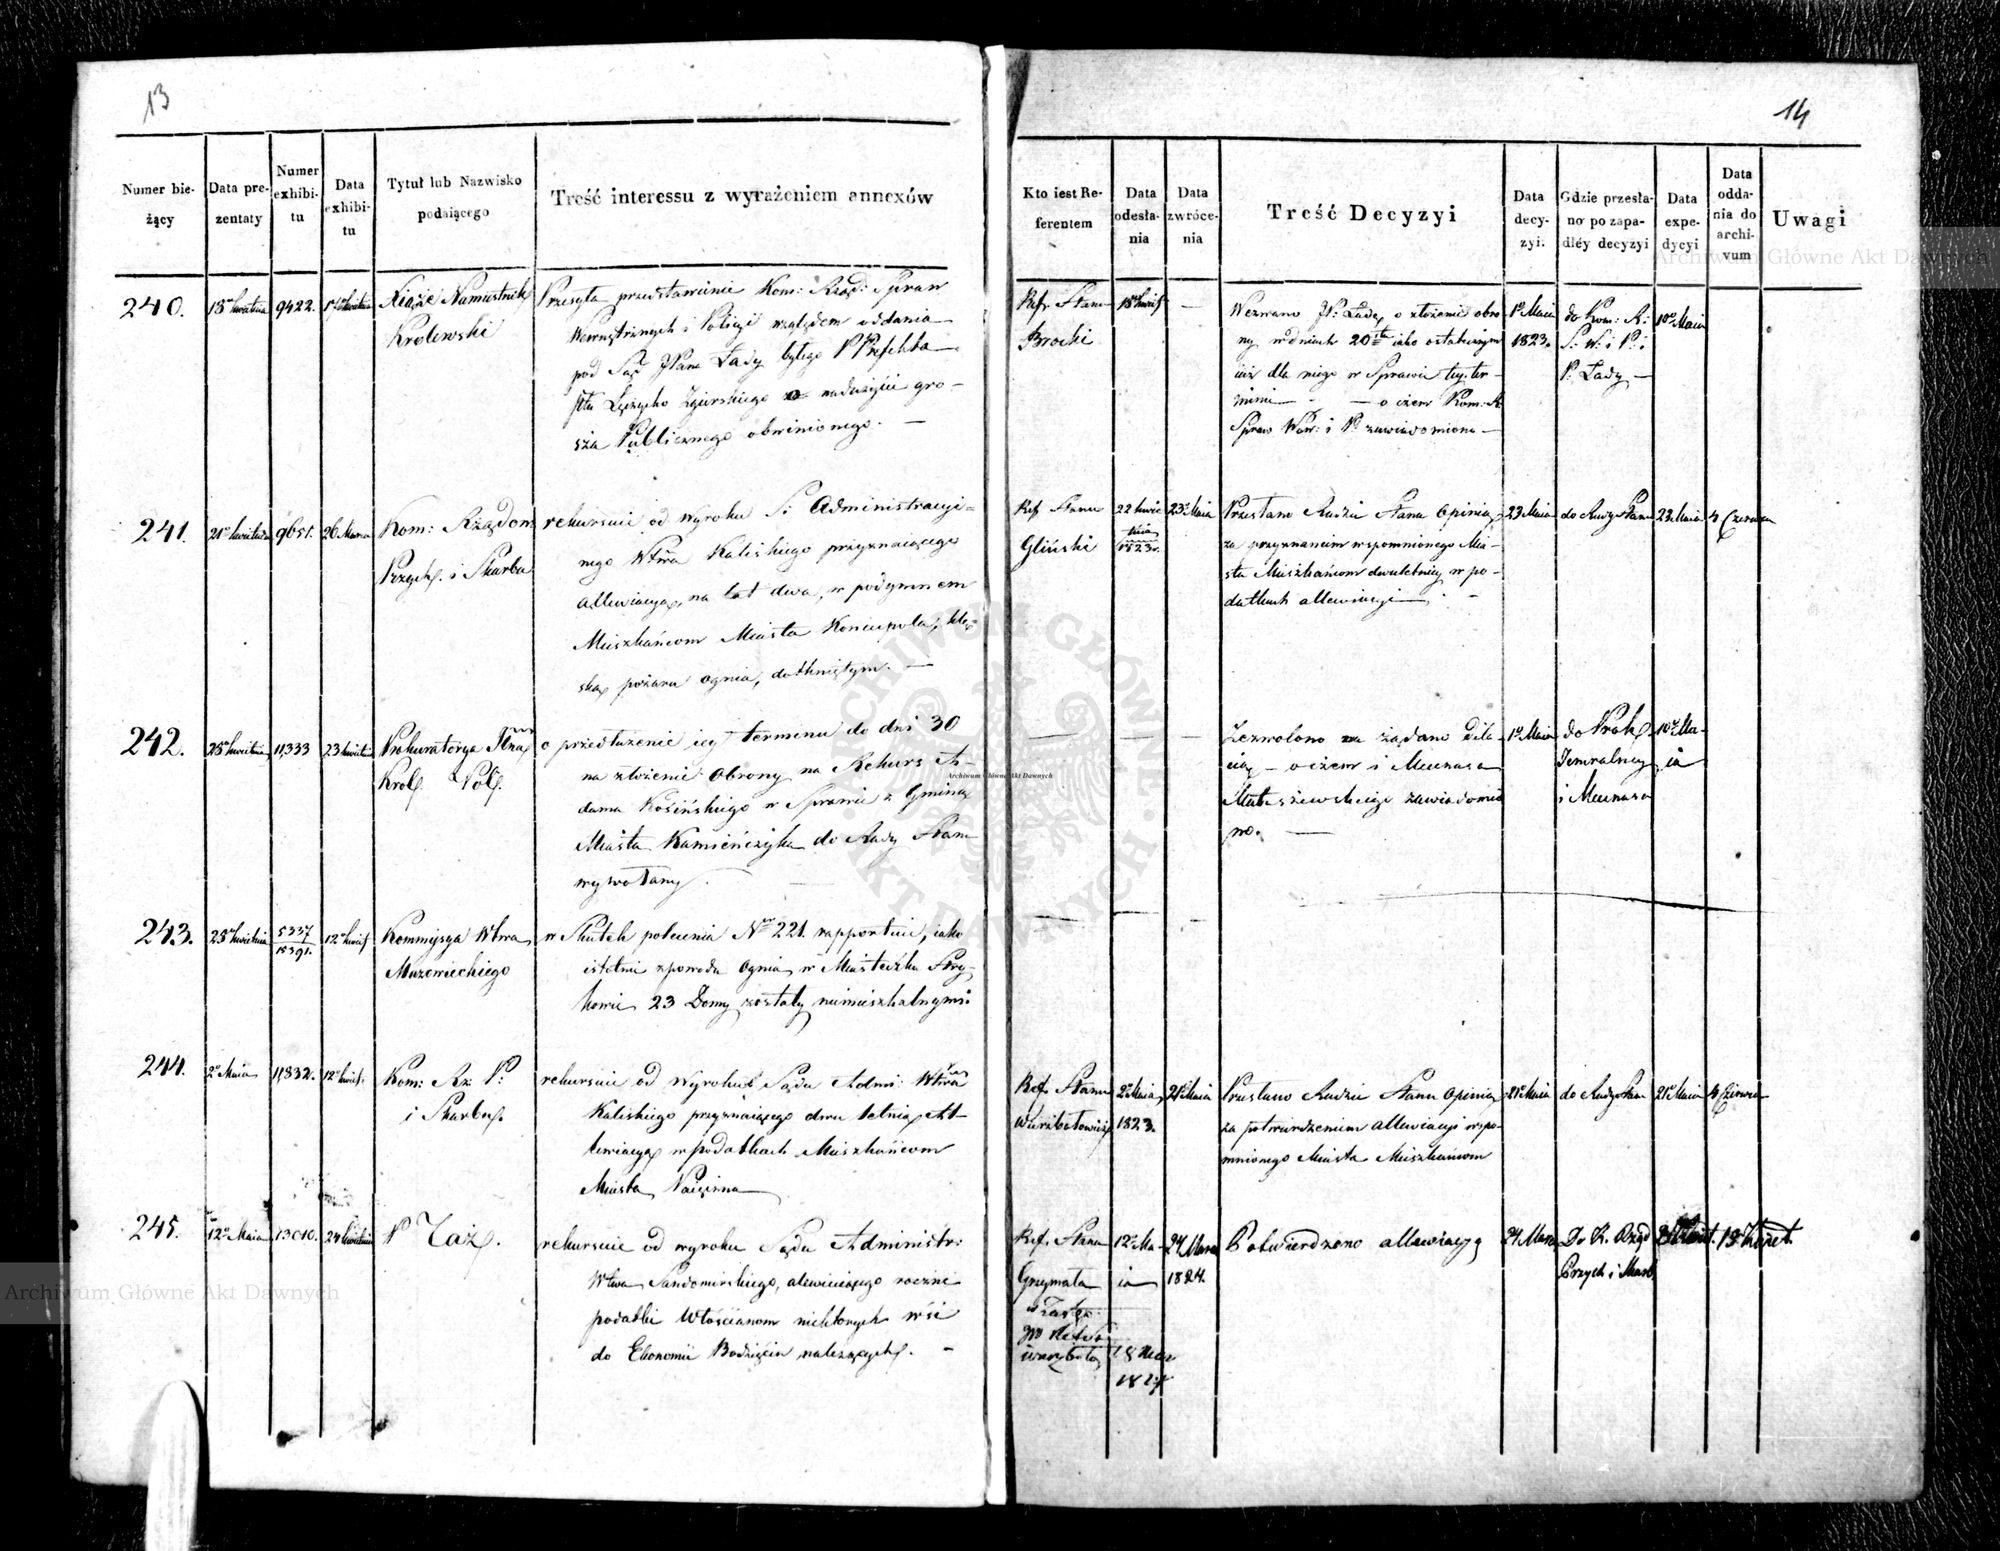 13
Numer bie-
żący
Data pre-
zentaty
Numer
exhibi-
tu
Data
exhibi-
tu
Tytuł lub Nazwisko
podaiącego
Treść interessu z wyrażeniem annexów
240.
18º kwietnia
9422.
kwietnia
Xiąże Namiestnik
Krolewski
Przesyła przedstawienie Kom: Rząd: Spraw
Wewnętrznych i Policyi względem oddania
pod Sąd JPana Łady byłego P Prefekta
Łęczycko Zgierskiego nadużycie gro-
sza Publicznego obwinionego. —
241.
21º kwietnia
9651.
26 Marca
Kom: Rządowa
Przych. i Skarbu
rekursuie od wyroku S: Administracyi-
nego Wtwa Kaliskiego przyznaiącego
allewiacyą, na lat dwa, w podymnem
Mieszkańcom Miasta Koniecpola, klę-
ską pożaru ognia, dotkniętym. —
242.
28º kwietnia
11,333
23 kwietnia
Prokuratorya
Król. Pol.
o przedłużenie iey terminu do dni 30
na złożenie Obrony na Rekurs A-
dama Kosińskiego w Sprawie z Gminą
Miasta Kamieńczyka do Rady Stanu
wywołany.
243.
28º kwietnia
5337
15391.
12º kwiet
Kommissya Wtwa
Mazowieckiego
w Skutek polecenia Nro 221. rapportuie, iako
istotnie z powodu Ognia w Miasteczku Stry-
kowie 23 Domy zostały niemieszkalnymi.
244.
2º Maia
11,832.
12º kwiet.
Kom: Rz: P:
i Skarbu.
rekursuie od Wyroku Sądu Admi: Wtwa
Kaliskiego przyznaiącego dwu letnią Al-
lewiacyą w podatkach Mieszkańcom
Miasta
245.
12º Maia
13010.
24 kwietnia
P Zaż.
rekursuie od wyroku Sądu Administr:
Wtwa Sandomirskiego, alewiuiącego roczne
podatki Włościanom niektorych wsi
do Ekonomii Bodzęcin należących. —
14
Kto iest Re-
ferentem
Data
odesła-
nia
Data
zwróce-
nia
Treść Decyzyi
Data
decy-
zyi.
Gdzie przesła-
no po zapa-
dléy decyzyi
Data
expe-
dycyi
Data
odda-
nia do
archi-
vum
Uwagi
Ref. Stanu
Brocki
18º kwiet
—
Wezwano JP: Ładę o złożenie obro-
ny w dniach 20stu iako ostatecznym
iuż dla niego w Sprawie tey ter-
minie — — o czem Kom: R
Spraw Wew: i P. zawiadomiono —
1º Maia
1823.
do Kom: R:
S: W: i P: i
P: Łady —
10º Maia
Ref Stanu
Gliński
22 kwie
tnia
1823r.
23º Maia
Przesłano Radzie Stanu Opinią
za przyznaniem wspomnionego Mia-
sta Mieszkańcom dwuletniey w po-
datkach allewiacyi —
23 Maia
do Rady Stanu
23 Maia
4 Czerwca
—
—
—
Zezwolono na żądaną dila-
cią — o czem i Mecenasa
zawiadomio
no. —
1º Maia
do Prok.
Jeneralney
i Mecenasa
10º Ma-
ia
Ref. Stanu
2º Maia
1823.
21º Maia
Przesłano Radzie Stanu Opinią
za potwierdzeniem allewiacyi wspo-
mnionego Miasta Mieszkańcom
21º Maia
do Rady Stanu
21º Maia
4 Czerwca
Ref. Stanu
Grzymała
12º Ma-
ia
18
24 Marca
1824.
Potwierdzono allewiacyą
24 Marca
Do K. Rząd
Przych i Skarb
Archiwum Główne Akt Dawnych
Archiwum Główne Akt Dawnych
Archiwum Główne Akt Dawnych
ARCHIWUM GŁÓWNE AKT DAWNYCH